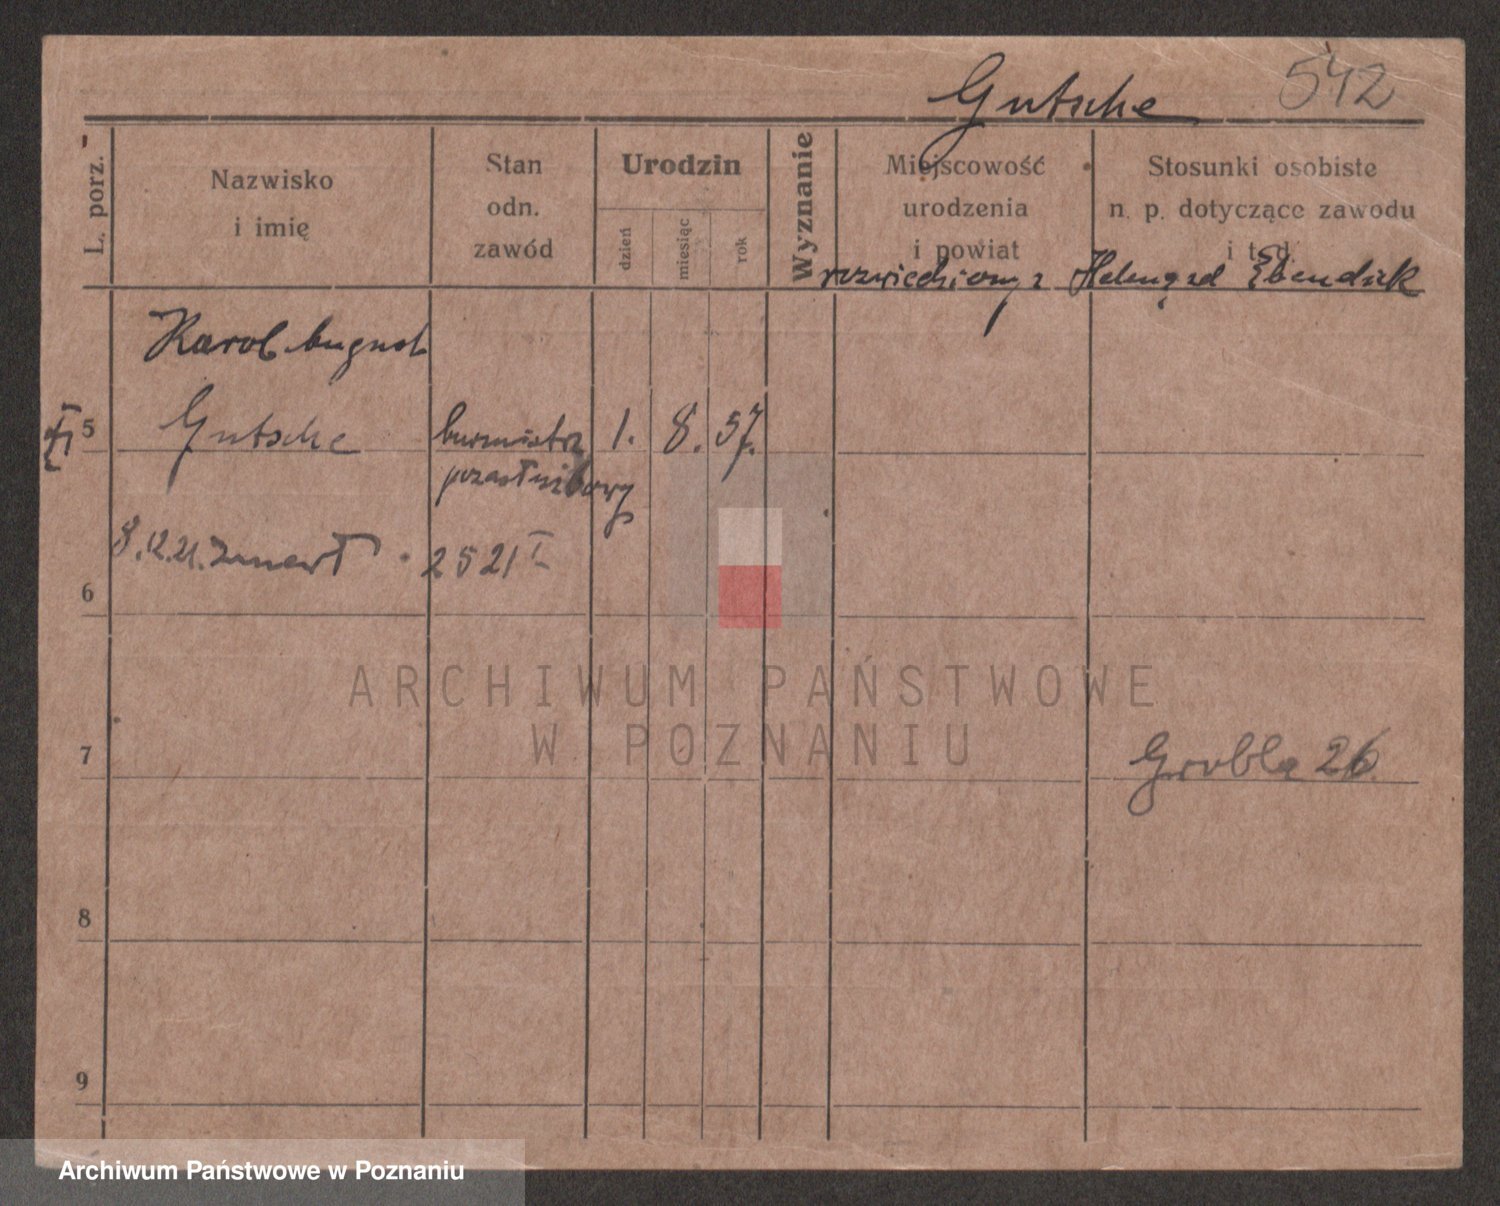 Gutsche 542
L. porz.
Nazwisko
i imię
Stan
odn.
zawód
Urodzin
dzień
miesiąc
rok
Wyznanie
Miejscowość
urodzenia
i powiat
Stosunki osobiste
n. p. dotyczące zawodu
i t. d.
rozwiedziony z Heleną zd
Karol August
5 Gutsche burmistrz 1. 8. 57.
pozasłużbowy
8.12.21. zmarł . 2521 I
6
7 Grobla 26
8
9
ARCHIWUM PAŃSTWOWE
W POZNANIU
Archiwum Państwowe w Poznaniu